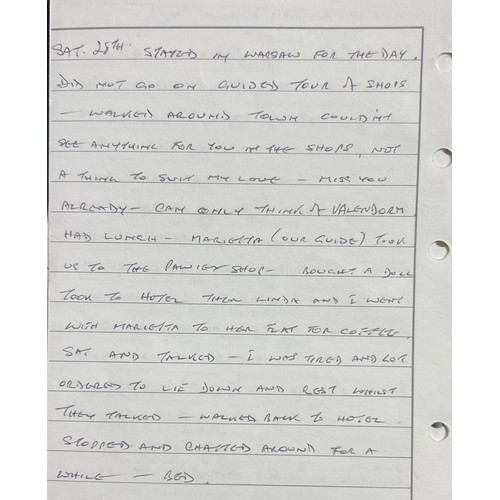 SAT. 28TH STAYED IN WARSAW FOR THE DAY.
DID NOT GO ON GUIDED TOUR & SHOPS
- WALKED AROUND TOWN COULDN'T
SEE ANYTHING FOR YOU IN THE SHOPS, NOT
A THING TO SUIT MY LOVE - MISS YOU
ALREADY - CAN ONLY THINK OF
HAD LUNCH - MARIETTA (OUR GUIDE) TOOK
US TO THE SHOP - BOUGHT A DOLL
TOOK TO HOTEL THEN LINDA AND I WENT
WITH MARIETTA TO HER FLAT FOR COFFEE,
SAT AND TALKED - I WAS TIRED AND GOT
ORDERED TO LIE DOWN AND REST WHILST
THEY TALKED - WALKED BACK TO HOTEL
STOPPED AND CHATTED AROUND FOR A
WHILE - BED.